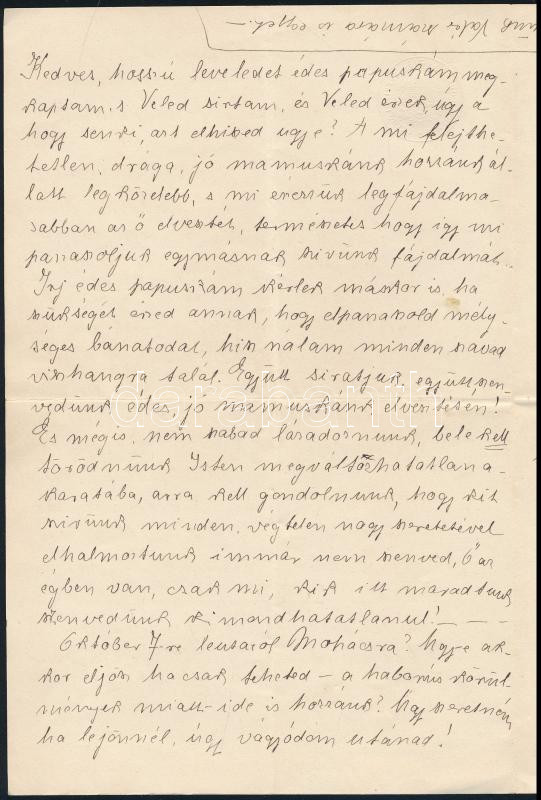 Valér számára is egyet. —
Kedves, hosszú leveledet édes papuskám meg-
kaptam s Veled sirtam, és Veled érzek, úgy a
hogy senki azt elhiszed ugye? A mi felejthe-
tetlen, drága, jó mamuskánk hozzánk ál-
latt legközelebb, s mi érezzük legfájdalma-
sabban az ő elvesztét, természetes hogy igy mi
panaszoljuk egymásnak szivünk fájdalmát.
Irj édes papuskám kérlek máskor is, ha
szükségét érzed annak, hogy elpanaszold mély-
séges bánatodat, hisz nálam minden szavad
visszhangra talál. Együtt siratjuk, együtt szen-
vedünk édes, jó mamuskánk elvesztésén!
És mégis, nem szabad lázadoznunk, bele kell
törődnünk Isten megváltozhatatlan a-
karatába, arra kell gondolnunk, hogy kit
szivünk minden, végtelen nagy szeretetével
elhalmoztunk immár nem szenved, Ő az
égben van, csak mi, kik itt maradtunk
szenvedünk kimondhatatlanul! — —
Október 7-re leutazol Mohácsra? Ugye ak-
kor eljösz ha csak teheted — a háborús körül-
mények miatt — ide is hozzánk? Úgy szeretném
ha lejönnél, úgy vágyódom utánad!
darabanth